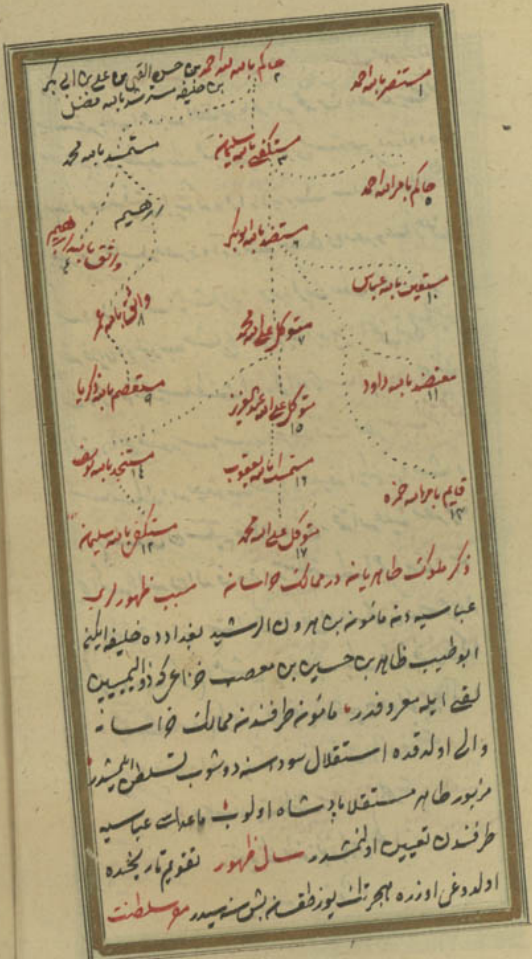 مستنصر بالله احمد
١
حاكم بامر الله احمد بن حسن القبى بن على بن ابى بكر
٢
بن خليفه مسترشد بالله فضل
مستمسك بالله محمد
مستكفى بالله سليمان
٣
حاكم بامر الله احمد
٥
ابرهيم
واثق بالله ابرهيم
٤
معتضد بالله ابو بكر
٦
مستعين بالله عباس
١٠
واثق بالله عمر
٨
متوكل على الله محمد
٧
معتضد بالله داود
١١
مستعصم بالله زكريا
٩
متوكل على الله عبد العزيز
١٥
مستنجد بالله يوسف
١٤
مستمسك بالله يعقوب
١٦
قايم بامر الله حمزه
١٣
مستكفى بالله سليمان
١٢
متوكل على الله محمد
١٧
ذكر ملوك طاهريان در ممالك خراسان سبب ظهور لرى
عباسيه دن مامون بن هرون الرشيد بغدادده خليفه ايكن
ابو طيب طاهر بن حسين بن مصعب خزاعى كه ذو اليمينين
لقبى ايله معروفدر مامون طرفندن ممالك خراسان
والى اولدقده استقلال سوداسنه دوشوب تسلطن ايلمشدر
مزبور طاهر مستقلا پادشاه اولوب ماعداسى عباسيه
طرفندن تعيين اولنمشدر سال ظهور تقويم تاريخده
اولدوغى اوزره هجرتك يوز طقسان بش سنه سيدر مقر سلطنت